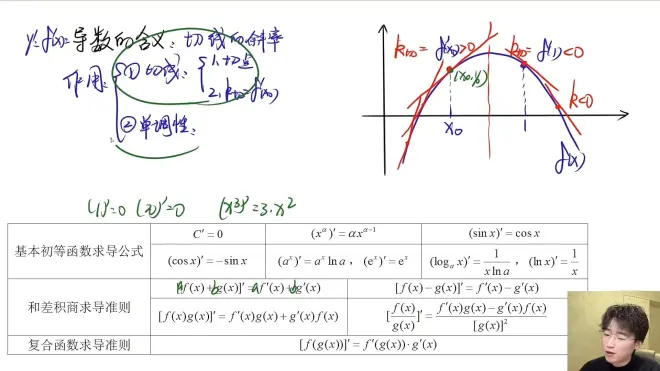 y'=f'(x)=导数的含义：切线的斜率
作用：
① 切线：
1. 切点
2. k切=f'(x₀)
② 单调性：
k切= f'(x₀)>0
k切= f'(1)<0
(x₀,y₀)
k<0
x₀
1
f(x)
(1)'=0 (2)'=0 (x³)'=3·x²
基本初等函数求导公式
C′=0
(x^α)′=αx^(α−1)
(sin x)′=cos x
(cos x)′=−sin x
(a^x)′=a^x ln a，(e^x)′=e^x
(log_a x)′=1/(x ln a)，(ln x)′=1/x
和差积商求导准则
[af(x)+bg(x)]′=af′(x)+bg′(x)
[f(x)−g(x)]′=f′(x)−g′(x)
[f(x)g(x)]′=f′(x)g(x)+g′(x)f(x)
[f(x)/g(x)]′=(f′(x)g(x)−g′(x)f(x))/[g(x)]²
复合函数求导准则
[f(g(x))]′=f′(g(x))·g′(x)